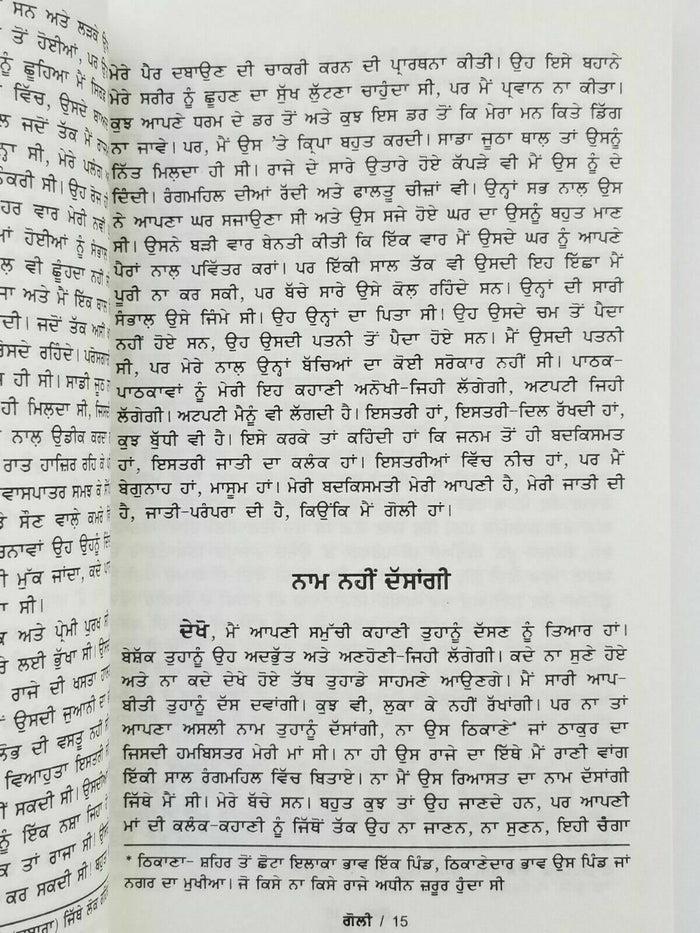 ਸਨ ਅਤੇ ਲੜਕੇ
ਤੋਂ ਹੋਈਆਂ, ਪਰ
ਨੂੰ ਛੂਹਿਆ ਮੈਂ ਸਿਰਫ਼
ਵਿੱਚ, ਉਸਦੇ
ਜਦੋਂ ਤੱਕ ਮੈਂ
ਸੀ, ਮੇਰੇ ਪਲੰਗ
ਨੌਕਰੀ ਸੀ। ਉਹ ਰੋਜ਼
ਹਰ ਵਾਰ ਮੇਰੀ ਨਵੀਂ
ਹੋਈਆਂ ਨੂੰ
ਵੀ ਛੂੰਹਦਾ ਨਹੀਂ
ਅਤੇ ਮੈਂ ਇੱਕ
ਦੀ। ਜਦੋਂ ਤੱਕ ਅਸੀਂ
ਰਹਿੰਦੇ।
ਹੀ ਸੀ। ਸਾਡੀ ਜੂਠ
ਹੀ ਮਿਲ਼ਦਾ ਸੀ,
ਨਾਲ਼ ਉਡੀਕ ਕਰਦਾ
ਰਾਤ ਹਾਜ਼ਿਰ ਰਹਿ ਕੇ
ਸਮਝ ਕੇ
ਸੌਣ ਵਾਲ਼ੇ ਕਮਰੇ
ਉਹ ਉਹਨੂੰ
ਮੁੱਕ ਜਾਂਦਾ, ਕਦੇ
ਸੀ।
ਅਤੇ ਪ੍ਰੇਮੀ ਪੁਰਖ
ਲਈ ਭੁੱਖਾ ਸੀ।
ਰਾਜੇ ਦੀ ਖਸਤਾ
ਉਸਦੀ ਜੁਆਨੀ ਦਾ
ਦੀ ਵਸਤੂ ਨਹੀਂ
ਵਿਆਹੁਤਾ ਇਸਤਰੀ
ਸਕਦੀ ਸੀ।
ਨੂੰ ਇੱਕ ਨਸ਼ਾ ਜਿਹਾ
ਤਾਂ ਰਾਜਾ ਸੀ।
ਕਰ ਸਕਦੀ ਸੀ।
ਜਿੱਥੇ ਲੋਕ
ਮੇਰੇ ਪੈਰ ਦਬਾਉਣ ਦੀ ਚਾਕਰੀ ਕਰਨ ਦੀ ਪ੍ਰਾਰਥਨਾ ਕੀਤੀ। ਉਹ ਇਸੇ ਬਹਾਨੇ
ਮੇਰੇ ਸਰੀਰ ਨੂੰ ਛੂਹਣ ਦਾ ਸੁੱਖ ਲੁੱਟਣਾ ਚਾਹੁੰਦਾ ਸੀ, ਪਰ ਮੈਂ ਪ੍ਰਵਾਨ ਨਾ ਕੀਤਾ।
ਕੁਝ ਆਪਣੇ ਧਰਮ ਦੇ ਡਰ ਤੋਂ ਅਤੇ ਕੁਝ ਇਸ ਡਰ ਤੋਂ ਕਿ ਮੇਰਾ ਮਨ ਕਿਤੇ ਡਿੱਗ
ਨਾ ਜਾਵੇ। ਪਰ, ਮੈਂ ਉਸ 'ਤੇ ਕ੍ਰਿਪਾ ਬਹੁਤ ਕਰਦੀ। ਸਾਡਾ ਜੂਠਾ ਥਾਲ਼ ਤਾਂ ਉਸਨੂੰ
ਨਿੱਤ ਮਿਲ਼ਦਾ ਹੀ ਸੀ। ਰਾਜੇ ਦੇ ਸਾਰੇ ਉਤਾਰੇ ਹੋਏ ਕੱਪੜੇ ਵੀ ਮੈਂ ਉਸ ਨੂੰ ਦੇ
ਦਿੰਦੀ। ਰੰਗਮਹਿਲ ਦੀਆਂ ਰੱਦੀ ਅਤੇ ਫਾਲਤੂ ਚੀਜ਼ਾਂ ਵੀ। ਉਨ੍ਹਾਂ ਸਭ ਨਾਲ਼ ਉਸ
ਨੇ ਆਪਣਾ ਘਰ ਸਜਾਉਣਾ ਸੀ ਅਤੇ ਉਸ ਸਜੇ ਹੋਏ ਘਰ ਦਾ ਉਸਨੂੰ ਬਹੁਤ ਮਾਣ
ਸੀ। ਉਸਨੇ ਬੜੀ ਵਾਰ ਬੇਨਤੀ ਕੀਤੀ ਕਿ ਇੱਕ ਵਾਰ ਮੈਂ ਉਸਦੇ ਘਰ ਨੂੰ ਆਪਣੇ
ਪੈਰਾਂ ਨਾਲ਼ ਪਵਿੱਤਰ ਕਰਾਂ। ਪਰ ਇੱਕੀ ਸਾਲ ਤੱਕ ਵੀ ਉਸਦੀ ਇਹ ਇੱਛਾ ਮੈਂ
ਪੂਰੀ ਨਾ ਕਰ ਸਕੀ, ਪਰ ਬੱਚੇ ਸਾਰੇ ਉਸੇ ਕੋਲ਼ ਰਹਿੰਦੇ ਸਨ। ਉਨ੍ਹਾਂ ਦੀ ਸਾਰੀ
ਸੰਭਾਲ਼ ਉਸੇ ਜਿੰਮੇ ਸੀ। ਉਹ ਉਨ੍ਹਾਂ ਦਾ ਪਿਤਾ ਸੀ! ਉਹ ਉਸਦੇ ਚਮ ਤੋਂ ਪੈਦਾ
ਨਹੀਂ ਹੋਏ ਸਨ, ਉਹ ਉਸਦੀ ਪਤਨੀ ਤੋਂ ਪੈਦਾ ਹੋਏ ਸਨ। ਮੈਂ ਉਸਦੀ ਪਤਨੀ
ਸੀ, ਪਰ ਮੇਰੇ ਨਾਲ਼ ਉਨ੍ਹਾਂ ਬੱਚਿਆਂ ਦਾ ਕੋਈ ਸਰੋਕਾਰ ਨਹੀਂ ਸੀ। ਪਾਠਕ-
ਪਾਠਕਾਵਾਂ ਨੂੰ ਮੇਰੀ ਇਹ ਕਹਾਣੀ ਅਨੋਖੀ-ਜਿਹੀ ਲੱਗੇਗੀ, ਅਟਪਟੀ ਜਿਹੀ
ਲੱਗੇਗੀ। ਅਟਪਟੀ ਮੈਨੂੰ ਵੀ ਲੱਗਦੀ ਹੈ। ਇਸਤਰੀ ਹਾਂ, ਇਸਤਰੀ-ਦਿਲ ਰੱਖਦੀ ਹਾਂ,
ਕੁਝ ਬੁੱਧੀ ਵੀ ਹੈ। ਇਸੇ ਕਰਕੇ ਤਾਂ ਕਹਿੰਦੀ ਹਾਂ ਕਿ ਜਨਮ ਤੋਂ ਹੀ ਬਦਕਿਸਮਤ
ਹਾਂ, ਇਸਤਰੀ ਜਾਤੀ ਦਾ ਕਲੰਕ ਹਾਂ। ਇਸਤਰੀਆਂ ਵਿੱਚ ਨੀਚ ਹਾਂ, ਪਰ ਮੈਂ
ਬੇਗੁਨਾਹ ਹਾਂ, ਮਾਸੂਮ ਹਾਂ। ਮੇਰੀ ਬਦਕਿਸਮਤੀ ਮੇਰੀ ਆਪਣੀ ਹੈ, ਮੇਰੀ ਜਾਤੀ ਦੀ
ਹੈ, ਜਾਤੀ-ਪਰੰਪਰਾ ਦੀ ਹੈ, ਕਿਉਂਕਿ ਮੈਂ ਗੋਲੀ ਹਾਂ।
ਨਾਮ ਨਹੀਂ ਦੱਸਾਂਗੀ
ਦੇਖੋ, ਮੈਂ ਆਪਣੀ ਸਮੁੱਚੀ ਕਹਾਣੀ ਤੁਹਾਨੂੰ ਦੱਸਣ ਨੂੰ ਤਿਆਰ ਹਾਂ।
ਬੇਸ਼ੱਕ ਤੁਹਾਨੂੰ ਉਹ ਅਦਭੁੱਤ ਅਤੇ ਅਣਹੋਣੀ-ਜਿਹੀ ਲੱਗੇਗੀ। ਕਦੇ ਨਾ ਸੁਣੇ ਹੋਏ
ਅਤੇ ਨਾ ਕਦੇ ਦੇਖੇ ਹੋਏ ਤੱਥ ਤੁਹਾਡੇ ਸਾਹਮਣੇ ਆਉਣਗੇ। ਮੈਂ ਸਾਰੀ ਆਪ-
ਬੀਤੀ ਤੁਹਾਨੂੰ ਦੱਸ ਦਵਾਂਗੀ। ਕੁਝ ਵੀ, ਲੁਕਾ ਕੇ ਨਹੀਂ ਰੱਖਾਂਗੀ। ਪਰ ਨਾ ਤਾਂ
ਆਪਣਾ ਅਸਲੀ ਨਾਮ ਤੁਹਾਨੂੰ ਦੱਸਾਂਗੀ, ਨਾ ਉਸ ਠਿਕਾਣੇ* ਜਾਂ ਠਾਕੁਰ ਦਾ
ਜਿਸਦੀ ਹਮਬਿਸਤਰ ਮੇਰੀ ਮਾਂ ਸੀ। ਨਾ ਹੀ ਉਸ ਰਾਜੇ ਦਾ ਇੱਥੇ ਮੈਂ ਰਾਣੀ ਵਾਂਗ
ਇੱਕੀ ਸਾਲ ਰੰਗਮਹਿਲ ਵਿੱਚ ਬਿਤਾਏ। ਨਾ ਮੈਂ ਉਸ ਰਿਆਸਤ ਦਾ ਨਾਮ ਦੱਸਾਂਗੀ
ਜਿੱਥੇ ਮੈਂ ਸੀ। ਮੇਰੇ ਬੱਚੇ ਸਨ। ਬਹੁਤ ਕੁਝ ਤਾਂ ਉਹ ਜਾਣਦੇ ਹਨ, ਪਰ ਆਪਣੀ
ਮਾਂ ਦੀ ਕਲੰਕ-ਕਹਾਣੀ ਨੂੰ ਜਿੱਥੋਂ ਤੱਕ ਉਹ ਨਾ ਜਾਣਨ, ਨਾ ਸੁਣਨ, ਇਹੀ ਚੰਗਾ
* ਠਿਕਾਣਾ- ਸ਼ਹਿਰ ਤੋਂ ਛੋਟਾ ਇਲਾਕਾ ਭਾਵ ਇੱਕ ਪਿੰਡ, ਠਿਕਾਣੇਦਾਰ ਭਾਵ ਉਸ ਪਿੰਡ ਜਾਂ
ਨਗਰ ਦਾ ਮੁਖੀਆ। ਜੋ ਕਿਸੇ ਨਾ ਕਿਸੇ ਰਾਜੇ ਅਧੀਨ ਜ਼ਰੂਰ ਹੁੰਦਾ ਸੀ
ਗੋਲੀ / 15